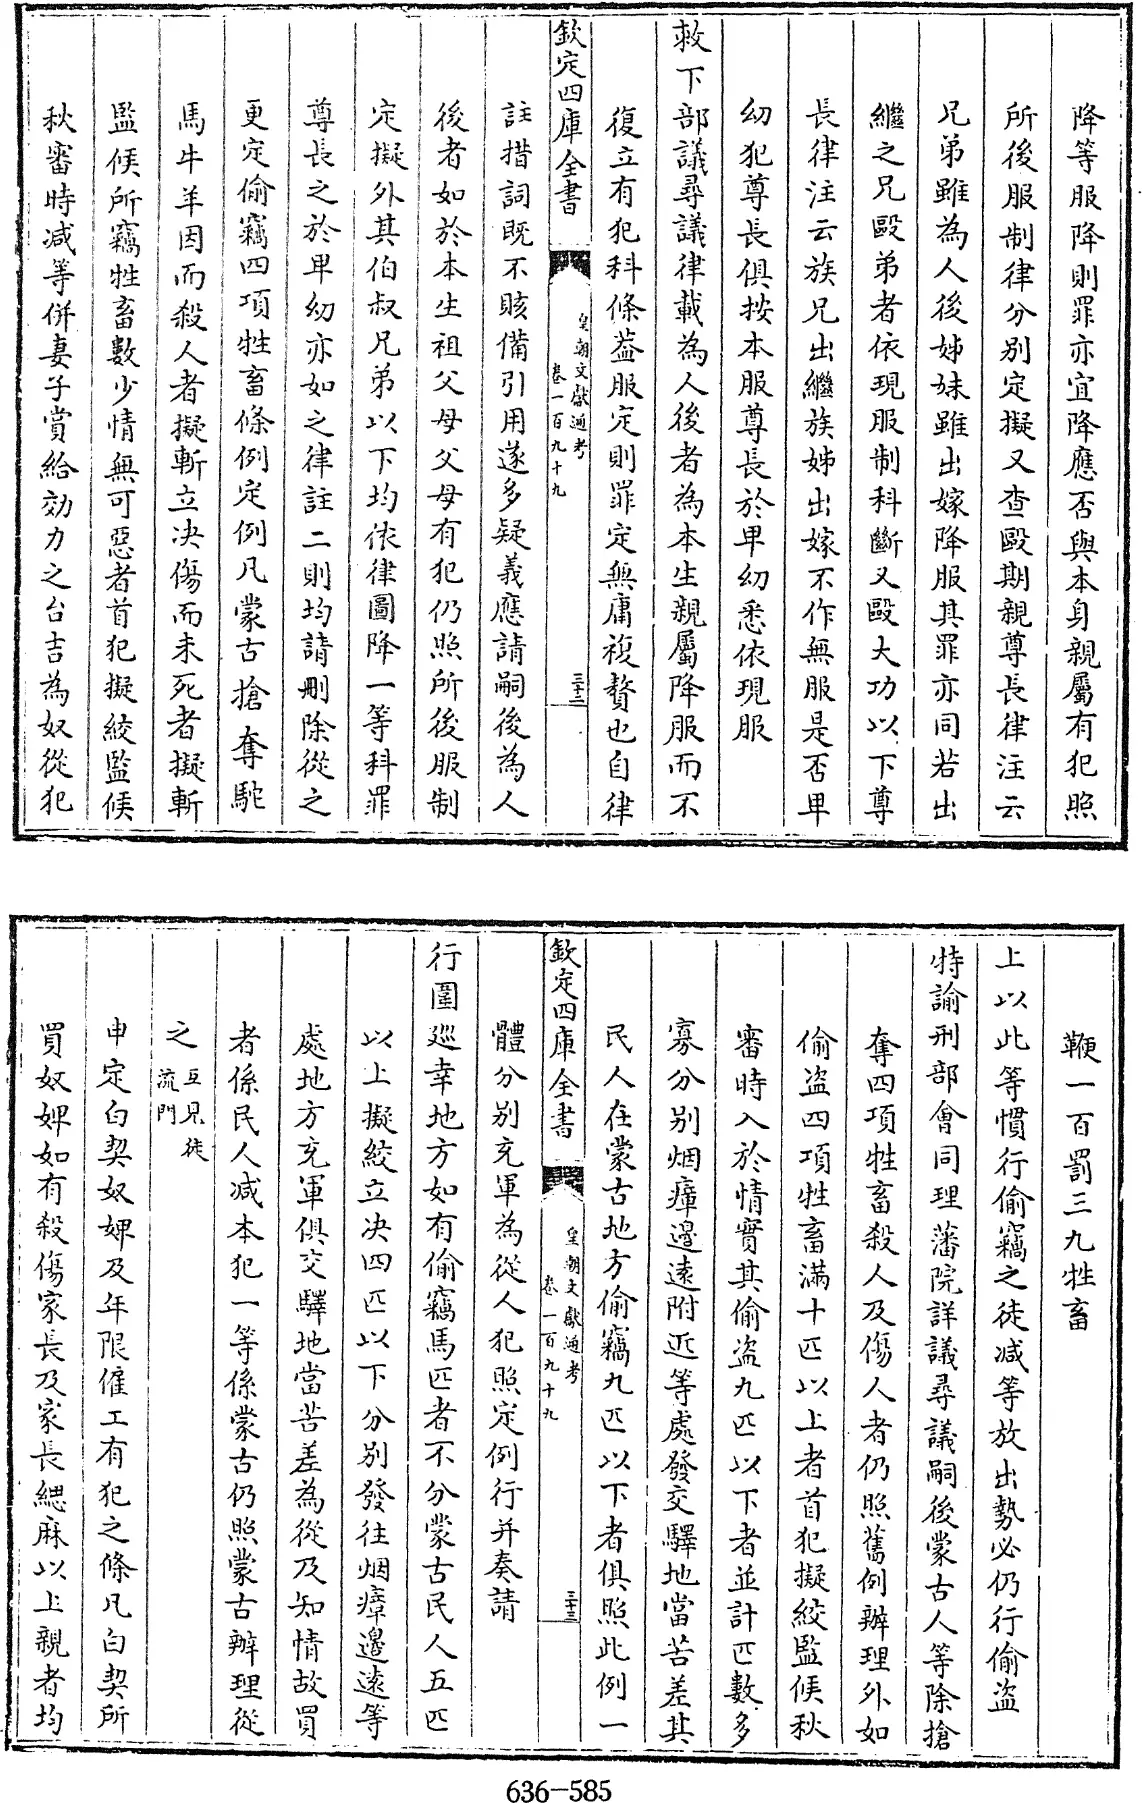 降等服降則罪亦宜降應否與本身親屬有犯照
所後服制律分别定擬又查毆期親尊長律注云
兄弟雖為人後姊妹雖出嫁降服其罪亦同若出
繼之兄毆弟者依現服制科斷又毆大功以下尊
長律注云族兄出繼族姊出嫁不作無服是否卑
幼犯尊長俱按本服尊長於卑幼悉依現服
敕下部議尋議律載為人後者為本生親屬降服而不
復立有犯科條葢服定則罪定無庸複贅也自律
欽定四庫全書
皇朝文獻通考
卷一百九十九
三十二
註措詞既不賅備引用遂多疑義應請嗣後為人
後者如於本生祖父母父母有犯仍照所後服制
定擬外其伯叔兄弟以下均依律圖降一等科罪
尊長之於卑幼亦如之律註二則均請刪除從之
更定偷竊四項牲畜條例定例凡蒙古搶奪駝
馬牛羊因而殺人者擬斬立决傷而未死者擬斬
監候所竊牲畜數少情無可惡者首犯擬絞監候
秋審時减等併妻子賞給効力之台吉為奴從犯
鞭一百罰三九牲畜
上以此等慣行偷竊之徒减等放出勢必仍行偷盗
特諭刑部會同理藩院詳議尋議嗣後蒙古人等除搶
奪四項牲畜殺人及傷人者仍照舊例辦理外如
偷盗四項牲畜滿十匹以上者首犯擬絞監候秋
審時入於情實其偷盗九匹以下者並計匹數多
寡分别烟瘴邊逺附近等處發交驛地當苦差其
民人在蒙古地方偷竊九匹以下者俱照此例一
欽定四庫全書
皇朝文獻通考
卷一百九十九
三十三
體分别充軍為從人犯照定例行并奏請
行圍巡幸地方如有偷竊馬匹者不分蒙古民人五匹
以上擬絞立决四匹以下分别發往烟瘴邊逺等
處地方充軍俱交驛地當苦差為從及知情故買
者係民人减本犯一等係蒙古仍照蒙古辦理從
之互見徒流門
申定白契奴婢及年限僱工有犯之條凡白契所
買奴婢如有殺傷家長及家長緦麻以上親者均
636-585